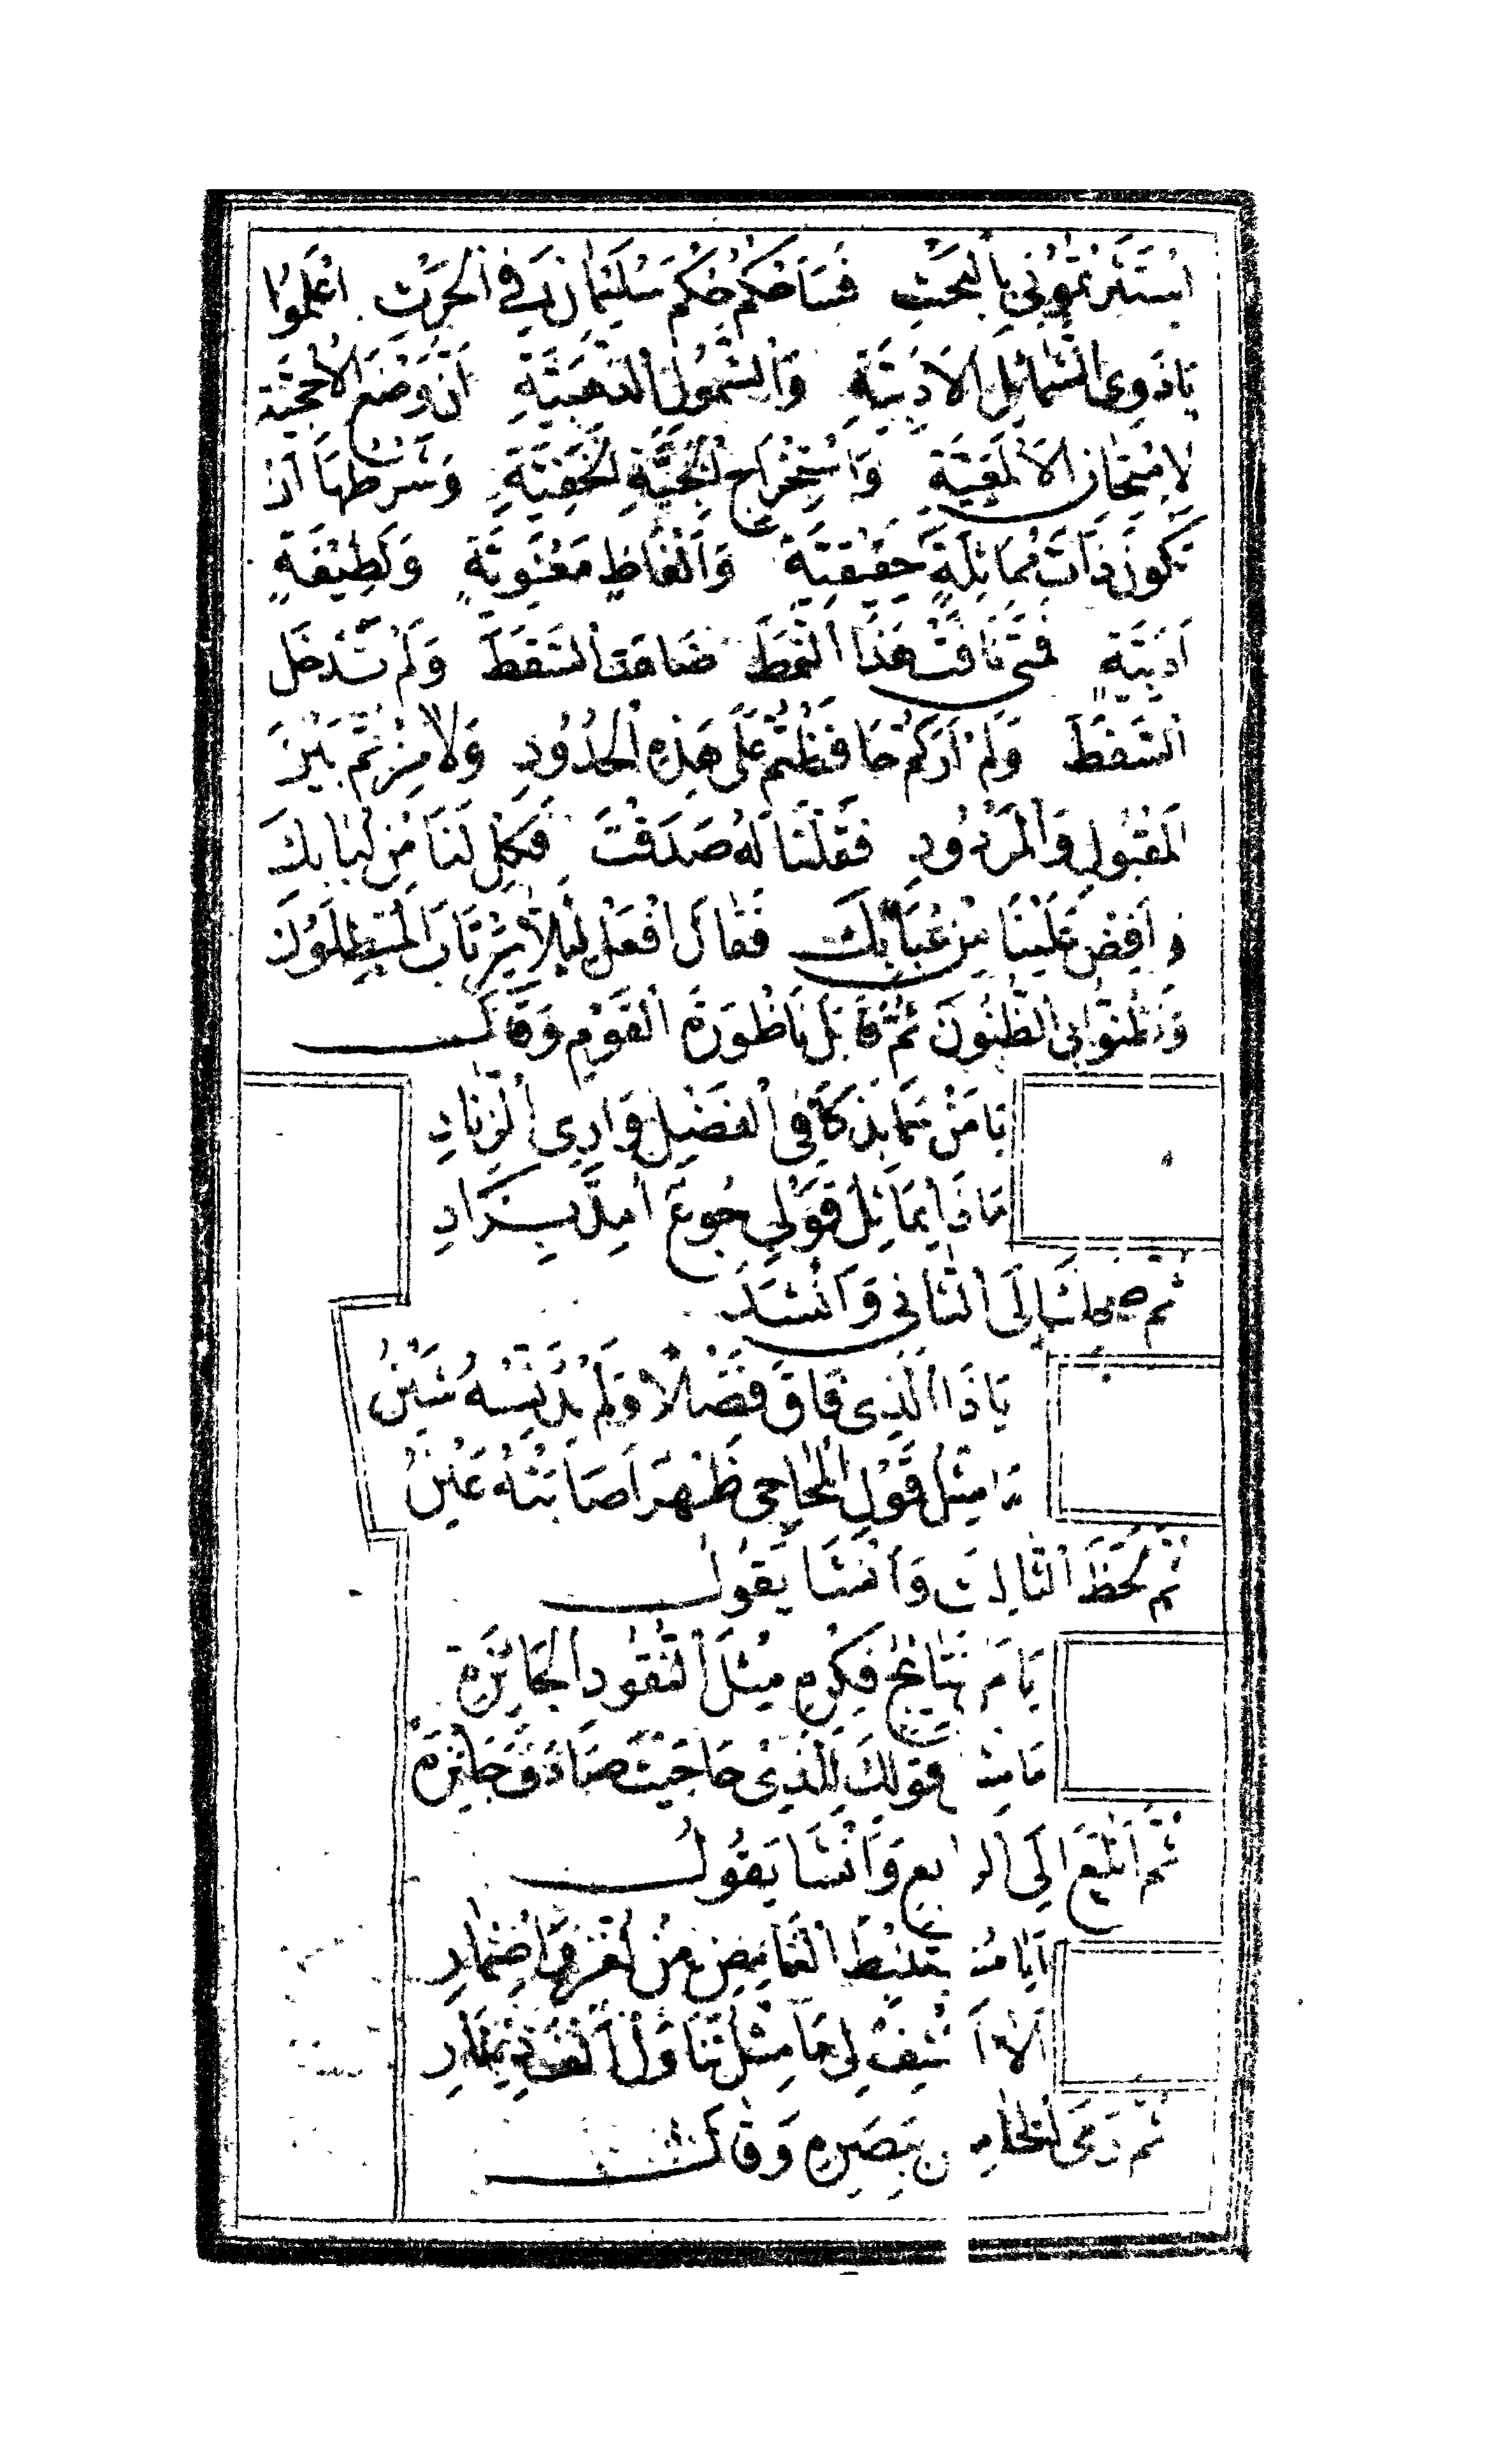 اِسْتَثَرْتُمُوْنِي بِالْبَحْثِ فَسَاَحْكُمُ حُكْمَ سُلَيْمَانَ فِي الْحَرْثِ اعْلَمُوْا
يَا ذَوِي الشَّمَائِلِ الْاَدَبِيَّةِ وَالشَّمُوْلِ الذَّهَبِيَّةِ اَنَّ وَضْعَ الْاُحْجِيَّةِ
لِامْتِحَانِ الْاَلْمَعِيَّةِ وَاسْتِخْرَاجِ الْخَبِيَّةِ الْخَفِيَّةِ وَشَرْطُهَا اَنْ
تَكُوْنَ ذَاتَ مُمَاثَلَةٍ حَقِيْقِيَّةٍ وَاَلْفَاظٍ مَعْنَوِيَّةٍ وَلَطِيْفَةٍ
اَدَبِيَّةٍ فَمَتَى نَافَتْ هَذَا النَّمَطَ ضَاهَتِ السَّقَطَ وَلَمْ تَدْخُلِ
السَّفَطَ وَلَمْ اَرَكُمْ حَافَظْتُمْ عَلَى هَذِهِ الْحُدُوْدِ وَلَا مِزْتُمْ بَيْنَ
الْمَقْبُوْلِ وَالْمَرْدُوْدِ فَقُلْنَا لَهُ صَدَقْتَ فَكِلْ لَنَا مِنْ لُبَابِكَ
وَاَفِضْ عَلَيْنَا مِنْ عُبَابِكَ فَقَالَ اَفْعَلُ لِئَلَّا يَرْتَابَ الْمُبْطِلُوْنَ
وَيَظُنُّوْا بِيَ الظُّنُوْنَ ثُمَّ قَابَلَ نَاظُوْرَةَ الْقَوْمِ وَقَالَ
يَا مَنْ سَمَا بِذَكَاءٍ فِي الْفَضْلِ وَارِي الزِّنَادِ
مَاذَا يُمَاثِلُ قَوْلِي جُوْعٌ اُمِدَّ بِزَادِ
ثُمَّ ضَحِكَ اِلَى الثَّانِي وَاَنْشَدَ
يَا ذَا الَّذِي فَاقَ فَضْلًا وَلَمْ يُدَنِّسْهُ شَيْنُ
مَا مِثْلُ قَوْلِ الْمُحَاجِي ظَهْرٌ اَصَابَتْهُ عَيْنُ
ثُمَّ لَحَظَ الثَّالِثَ وَاَنْشَا يَقُوْلُ
يَا مَنْ نَتَائِجُ فِكْرِهِ مِثْلُ النُّقُوْدِ الْجَائِزَةِ
مَا مِثْلُ قَوْلِكَ لِلَّذِي حَاجَيْتَ صَادَفَ جَائِزَةً
ثُمَّ اَتْلَعَ اِلَى الرَّابِعِ وَاَنْشَا يَقُوْلُ
اَيَا مُسْتَنْبِطَ الْغَامِضِ مِنْ لُغْزٍ وَاِضْمَارِ
اَلَا اكْشِفْ لِي مَا مِثْلُ تَنَاوَلْ اَلْفَ دِيْنَارِ
ثُمَّ رَمَى الْخَامِسَ بِبَصَرِهِ وَقَالَ